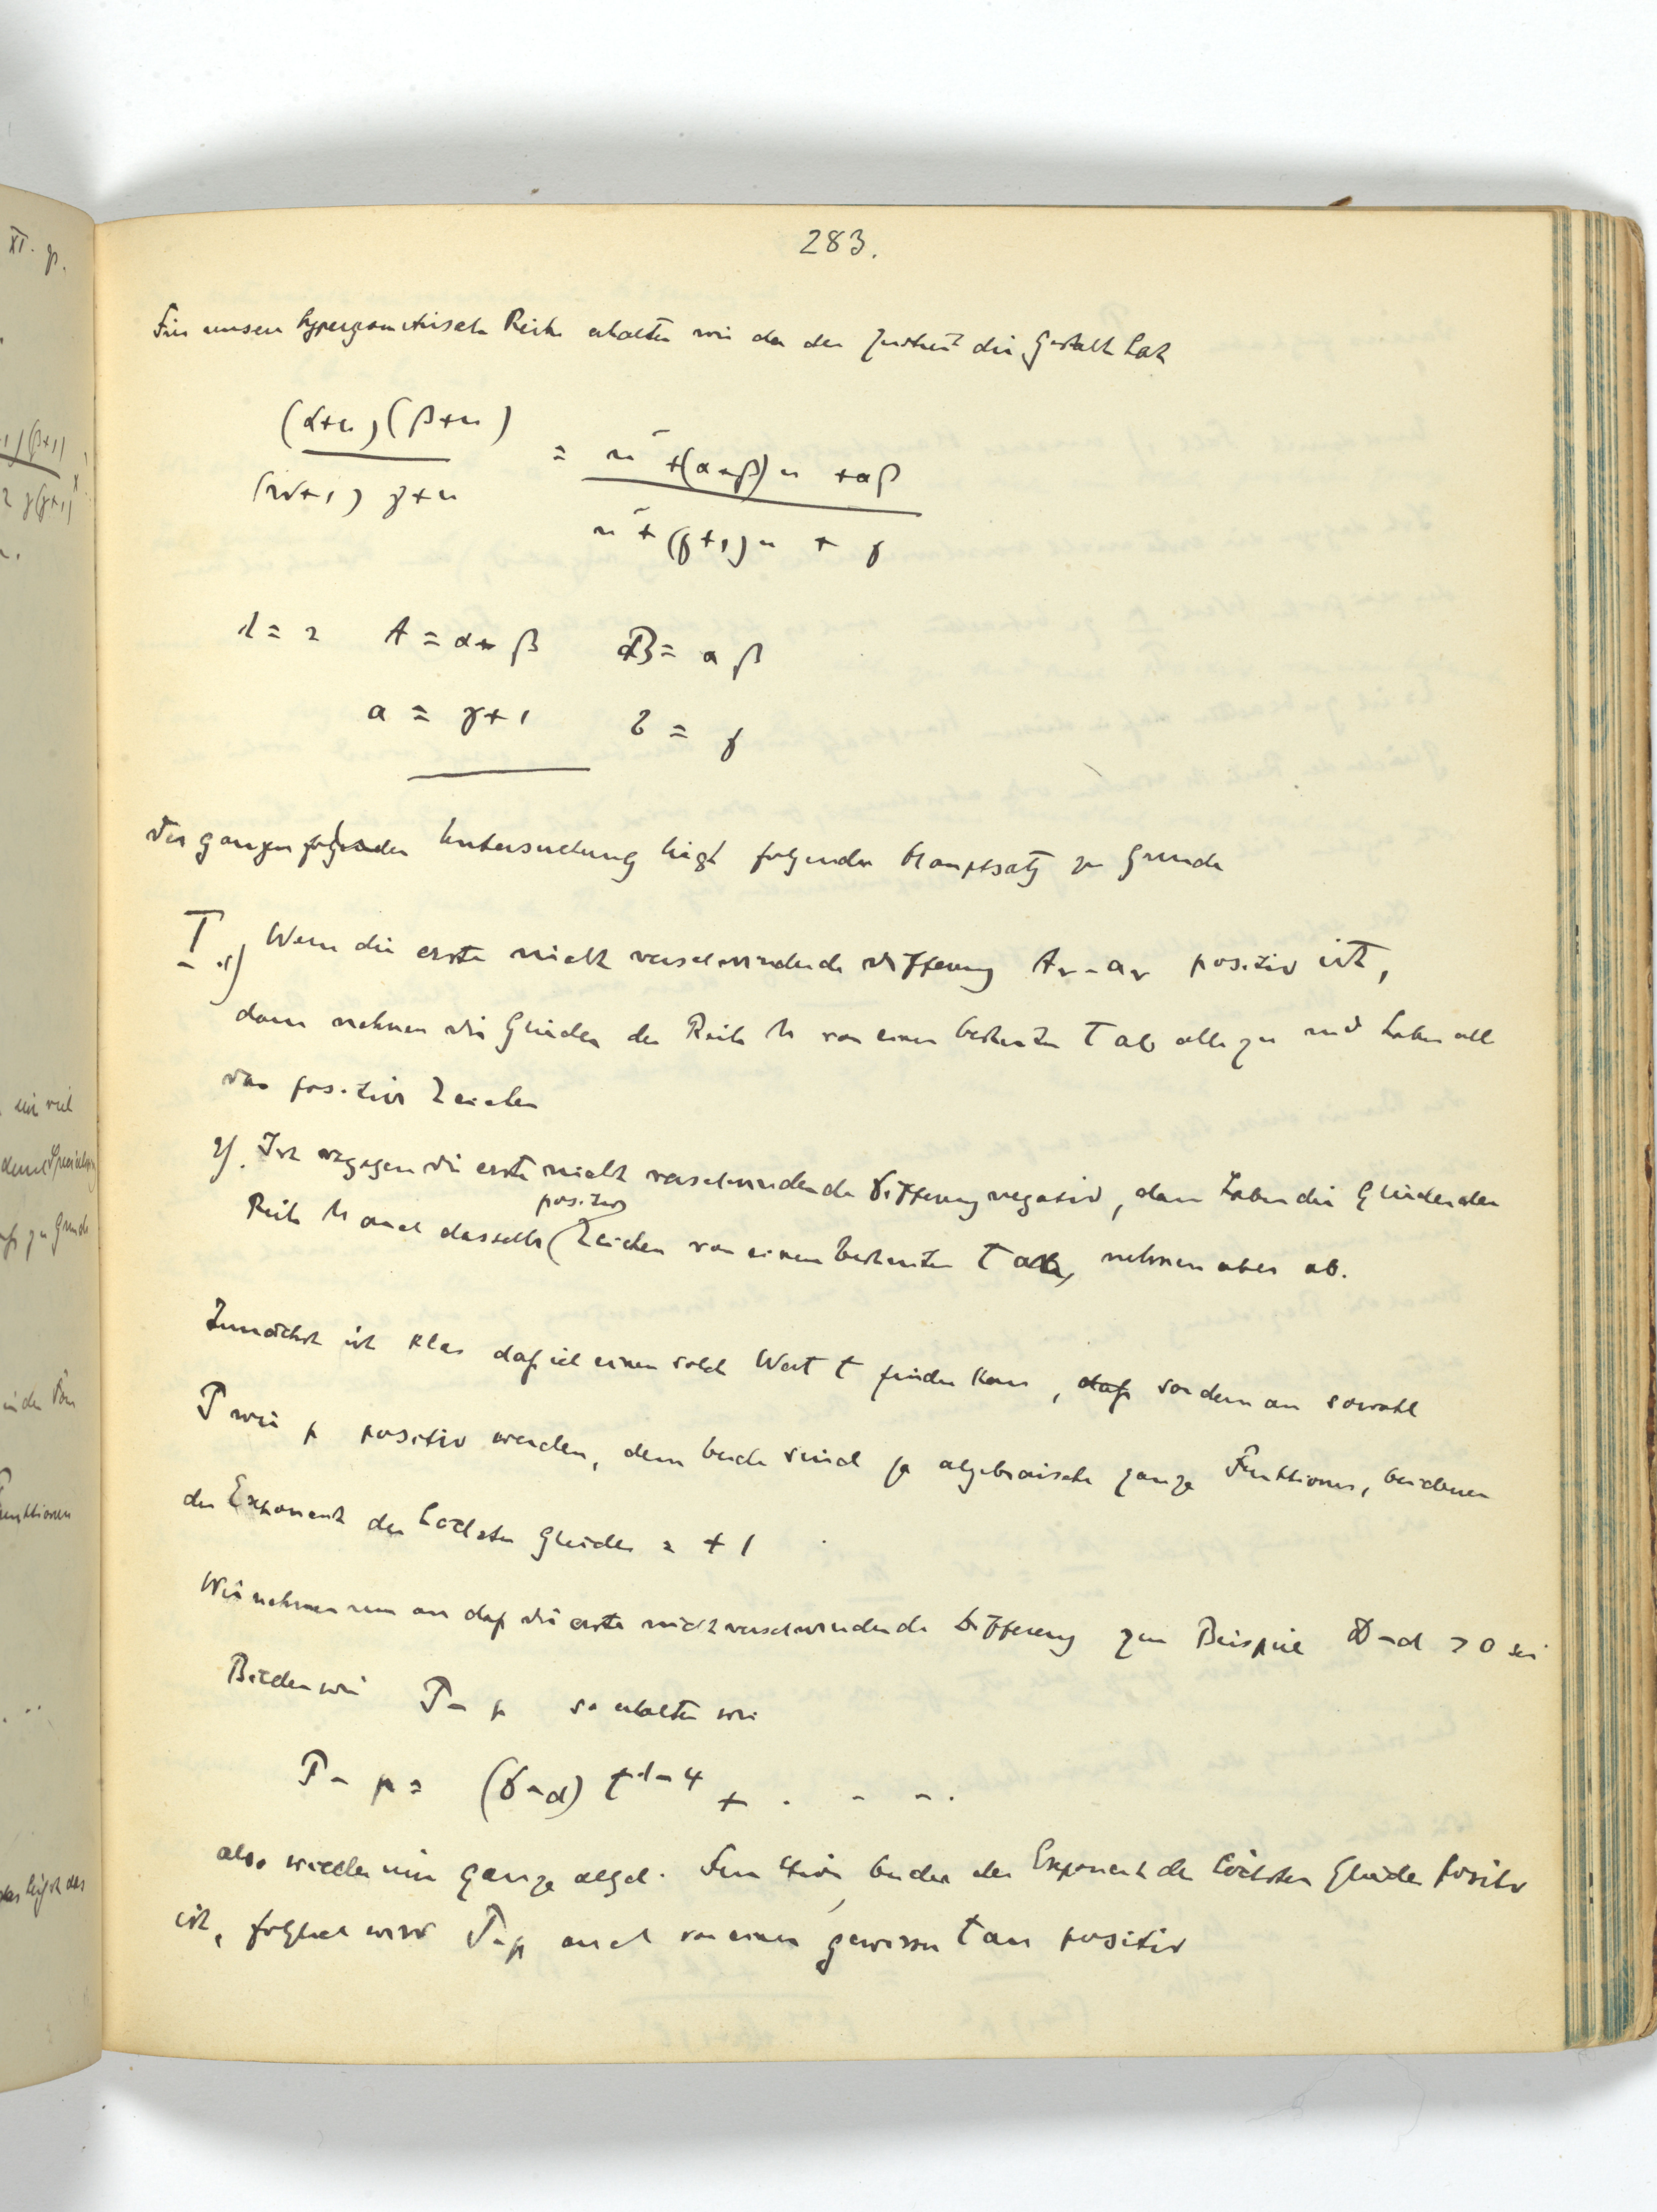 283.
Für unsere hypergeometrische Reihe erhalten wir da der Quotient die Gestalt hat
(α+n)(β+n) / (n+1) γ+n = n² + (α+β)n + αβ / n² + (γ+1)n + γ
λ = 2 A = α+β B = αβ
a = γ+1 b = γ
Der ganzen folgenden Untersuchung liegt folgender Hauptsatz zu Grunde
I. 1) Wenn die erste nicht verschwindende Differenz Aν - aν positiv ist,
dann nehmen die Glieder der Reihe M von einem bestimten t ab alle zu und haben alle
das positive Zeichen
2). Ist dagegen die erste nicht verschwindende Differenz negativ, dann haben die Glieder der
Reihe M auch dasselbe positive Zeichen von einem bestimten t ab, nehmen aber ab.
Zunächst ist klar daß ich einen solch Wert t finden kann, daß von dem an sowohl
P wie p positiv werden, denn beide sind ja algebraische ganze Funktionen, bei denen
der Exponent des höchsten Gliedes = +1
Wir nehmen nun an daß die erste nicht verschwindende Differenz zum Beispiel D-d > 0 sei
Bilden wir P - p so erhalten wir
P - p = (D-d) t^λ-4 + . - - .
also wieder eine ganze algeb. Funktion, bei der der Exponent des höchsten Gliedes positiv
ist, folglich wird P-p auch von einem gewissen t an positiv